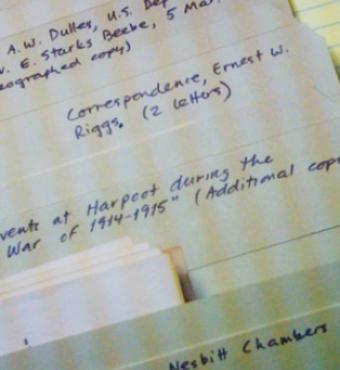 A.W. Dulles, U.S. Dep
E. Starks Beebe, 5 Mar.
eographed copy)
Correspondence, Ernest W.
Riggs. (2 letters)
vents at Harpoot during the
War of 1914-1915" (Additional cop
Nesbitt Chambers